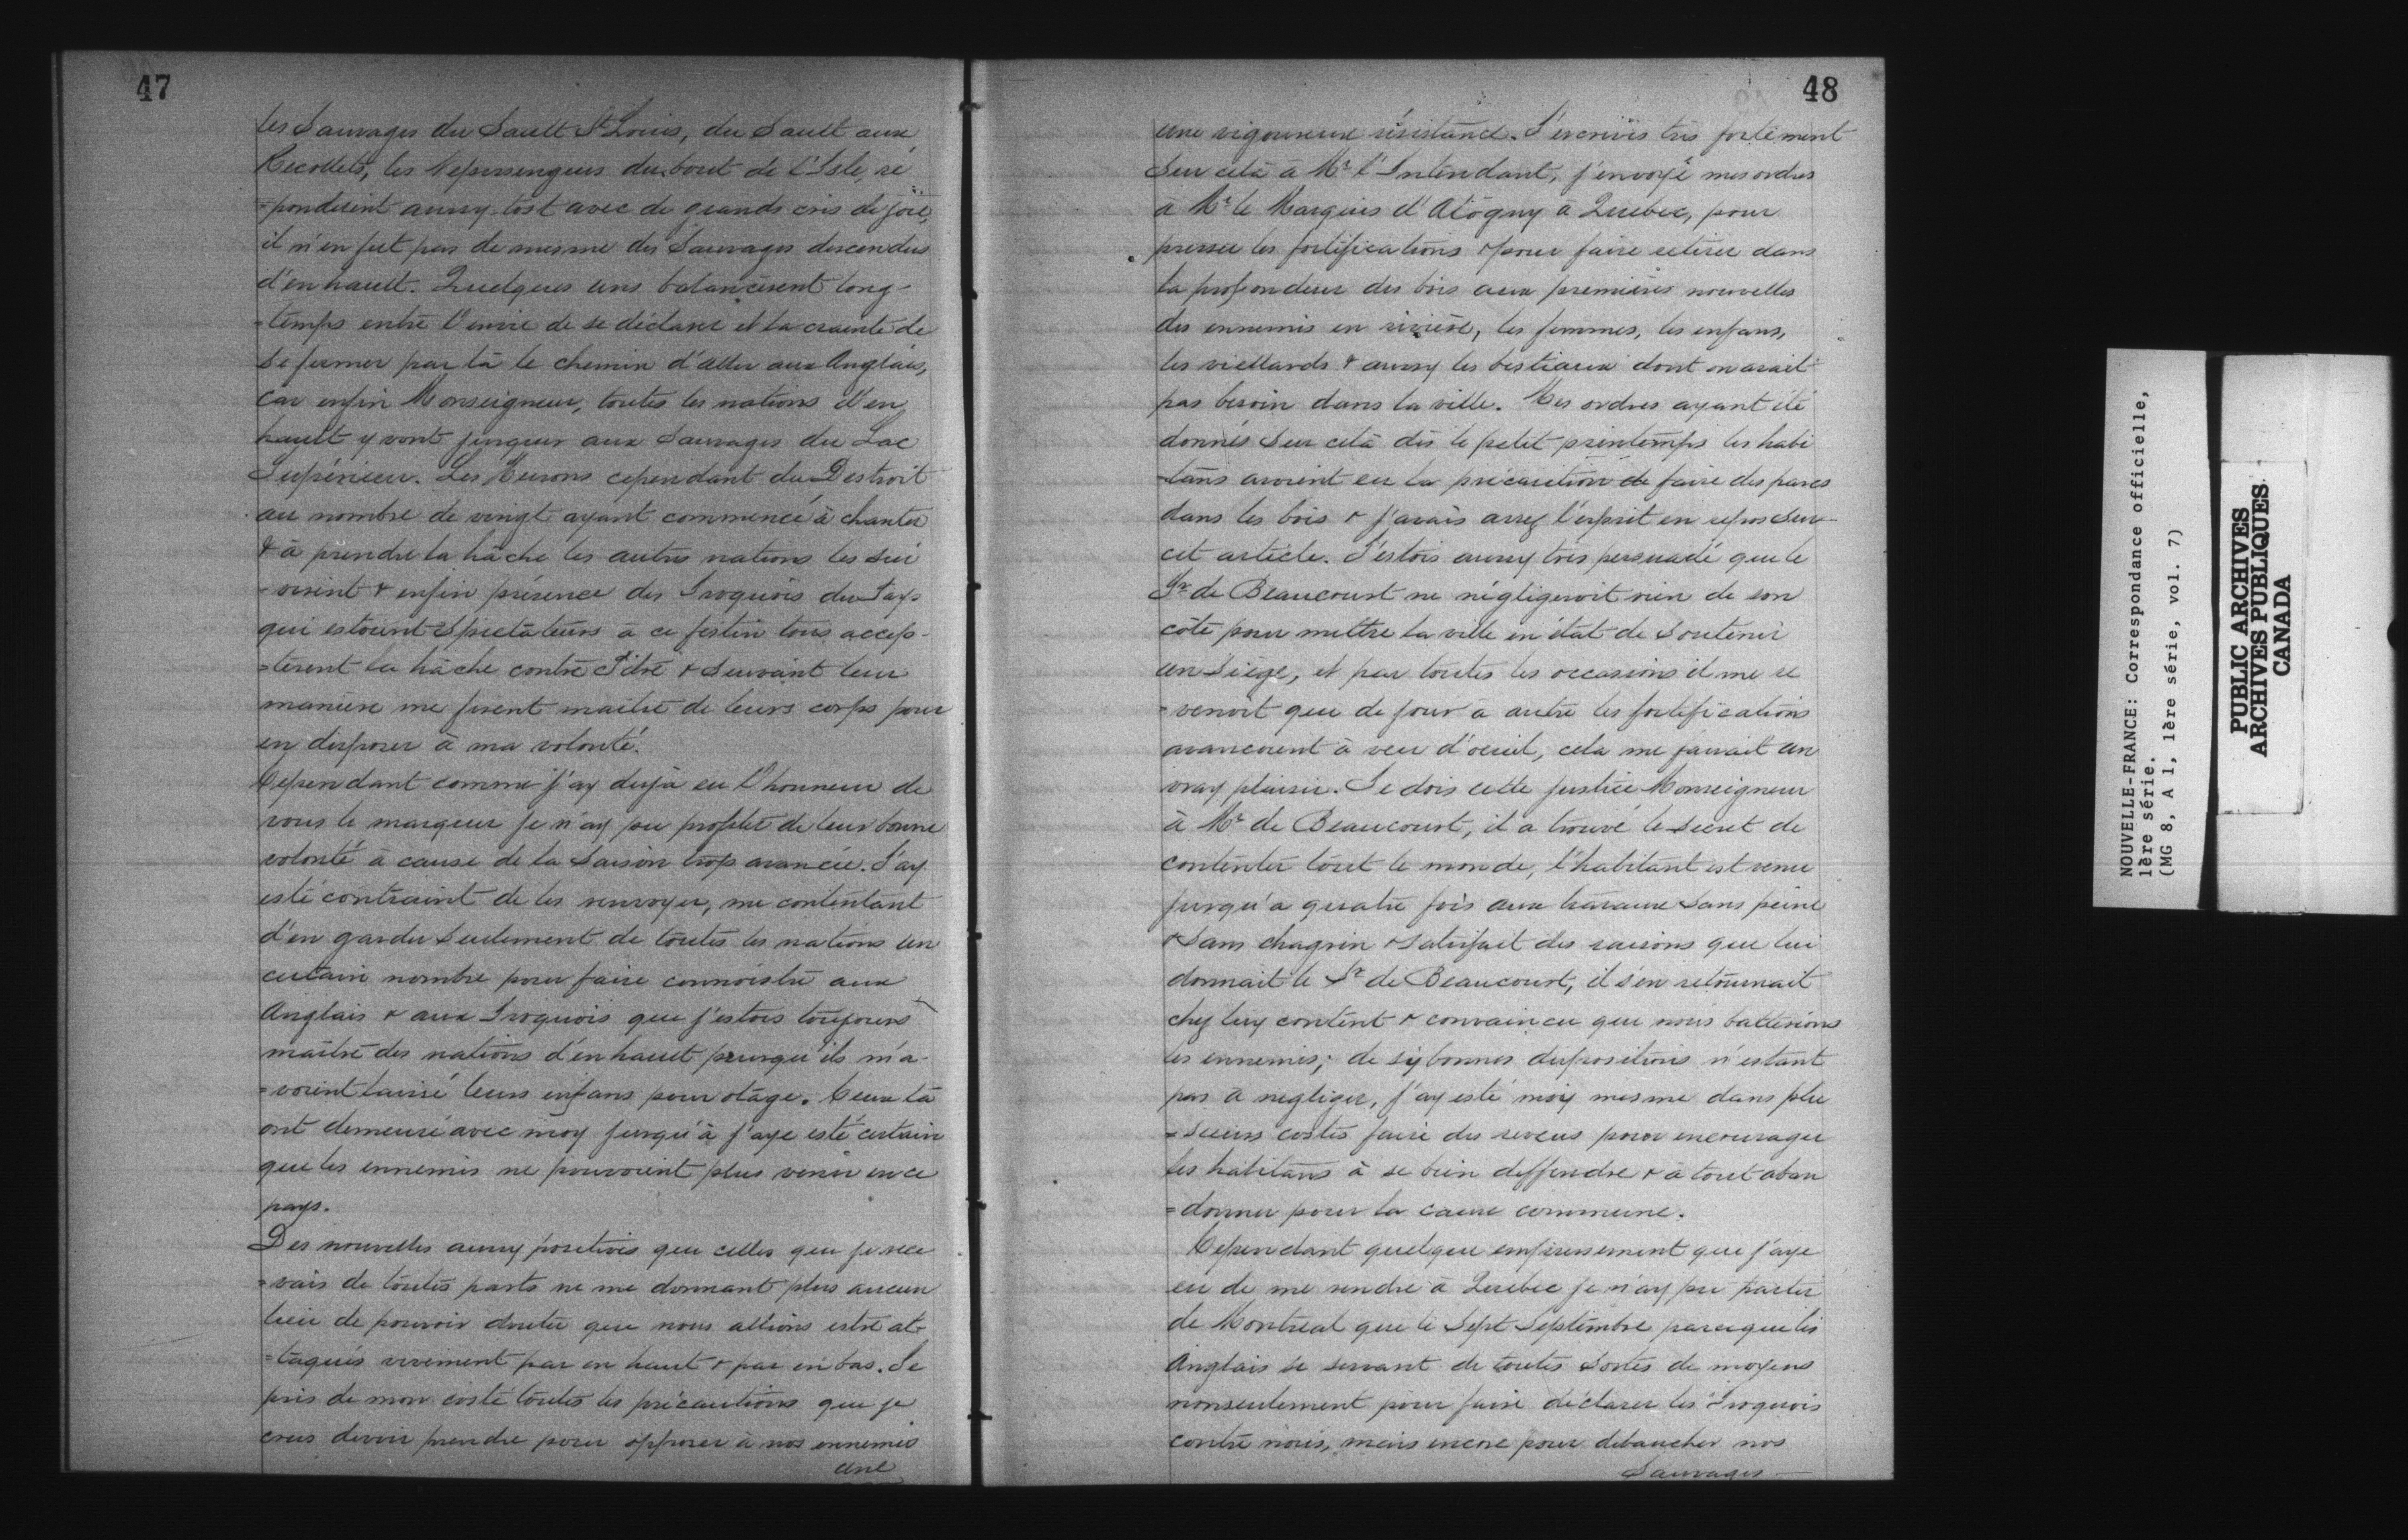 47
les Sauvages du Sault St Louis, du Sault aux
Recollets, les Nepissengues du bout de l'Isle, ré
=pondirent aussy tost avec de grands cris de joïe,
il n'en fut pas de mesme des Sauvages descendus
d'en hault. Quelques uns balancèrent long-
=temps entre l'envie de se déclarer et la crainte de
se fermer par là le chemin d'aller aux Anglais,
car enfin Monseigneur, toutes les nations d'en
hault y vont jusques aux Sauvages du Lac
Supérieur. Les Hurons cependant du Destroit
au nombre de vingt ayant commencé à chanter
& à prendre la hâche les autres nations les sui
-virent & enfin présence des Iroquois du Pays
qui estoient spectateurs à ce festin tous accep-
=tèrent la hâche contre Pitre & suivant leur
manière me firent maître de leurs corps pour
en disposer à ma volonté.
Cependant comme j'ay desja eu l'honneur de
vous le marquer je n'ay pu profiter de leur bonne
volonté à cause de la saison trop avancée. J'ay
esté contraint de les renvoyer, me contentant
d'en garder seulement de toutes les nations un
certain nombre pour faire connoistre aux
Anglais & aux Iroquois que j'estois toujours
maître des nations d'en hault puisqu'ils m'a-
=voient laissé leurs enfans pour otâge. Ceux là
ont demeuré avec moy jusqu'à j'aye esté certain
que les ennemis ne pouvoient plus venir en ce
pays.
Des nouvelles aussy positives que celles que je rece
=vais de toutes parts ne me donnant plus aucun
lieu de pouvoir douter que nous allions estre at-
=taqués vivement par en haut & par en bas. Je
pris de mon costé toutes les précautions que je
crus devoir prendre pour opposer à nos ennemis
une
48
une vigoureuse résistance. J'écrivis très fortement
sur cela à Mr l'Intendant, j'envoyé mes ordres
à Mr le Marquis d'Alogny à Quebec, pour
presser les fortifications & pour faire retirer dans
la profondeur des bois aux premières nouvelles
des ennemis en rivière, les femmes, les enfans,
les viellards & aussy les bestiaux dont on avait
pas besoin dans la ville. Mes ordres ayant été
donnés sur cela dès le petit printemps les habi
-tans avoient eu la précaution de faire des parcs
dans les bois & j'avais assez l'esprit en repos sur
cet article. J'estois aussy très persuadé que le
Sr de Beaucourt ne négligeroit rien de son
côté pour mettre la ville en état de soutenir
un siège, et par toutes les occasions il me re
=venoit que de jour à autre les fortifications
avancoient à veu d'oeuil, cela me faisait un
vray plaisir. Je dois cette justice Monseigneur
à Mr de Beaucourt, il a trouvé le secret de
contenter tout le monde, l'habitant est venu
jusqu'à quatre fois aux travaux sans peine
& sans chagrin & satisfait des raisons que lui
donnait le Sr de Beaucourt, il s'en retournait
chez luy content & convaincu que nous batterions
les ennemis; de sy bonnes dispositions n'estant
pas à negliger, j'ay esté moy mesme dans plu
=sieurs costés faire des reveus pour encourager
les habitans à se bien deffendre & à tout aban
=donner pour la cause commune.
Cependant quelque empressement que j'aye
eu de me rendre à Quebec je n'ay pu partir
de Montreal que le sept Septembre parceque les
Anglais se servant de toutes sortes de moyens
nonseulement pour faire déclarer les Iroquois
contre nous, mais encore pour débaucher nos
Sauvages
NOUVELLE-FRANCE: Correspondance officielle,
1ère série.
(MG 8, A 1, 1ère série, vol. 7)
PUBLIC ARCHIVES
ARCHIVES PUBLIQUES
CANADA